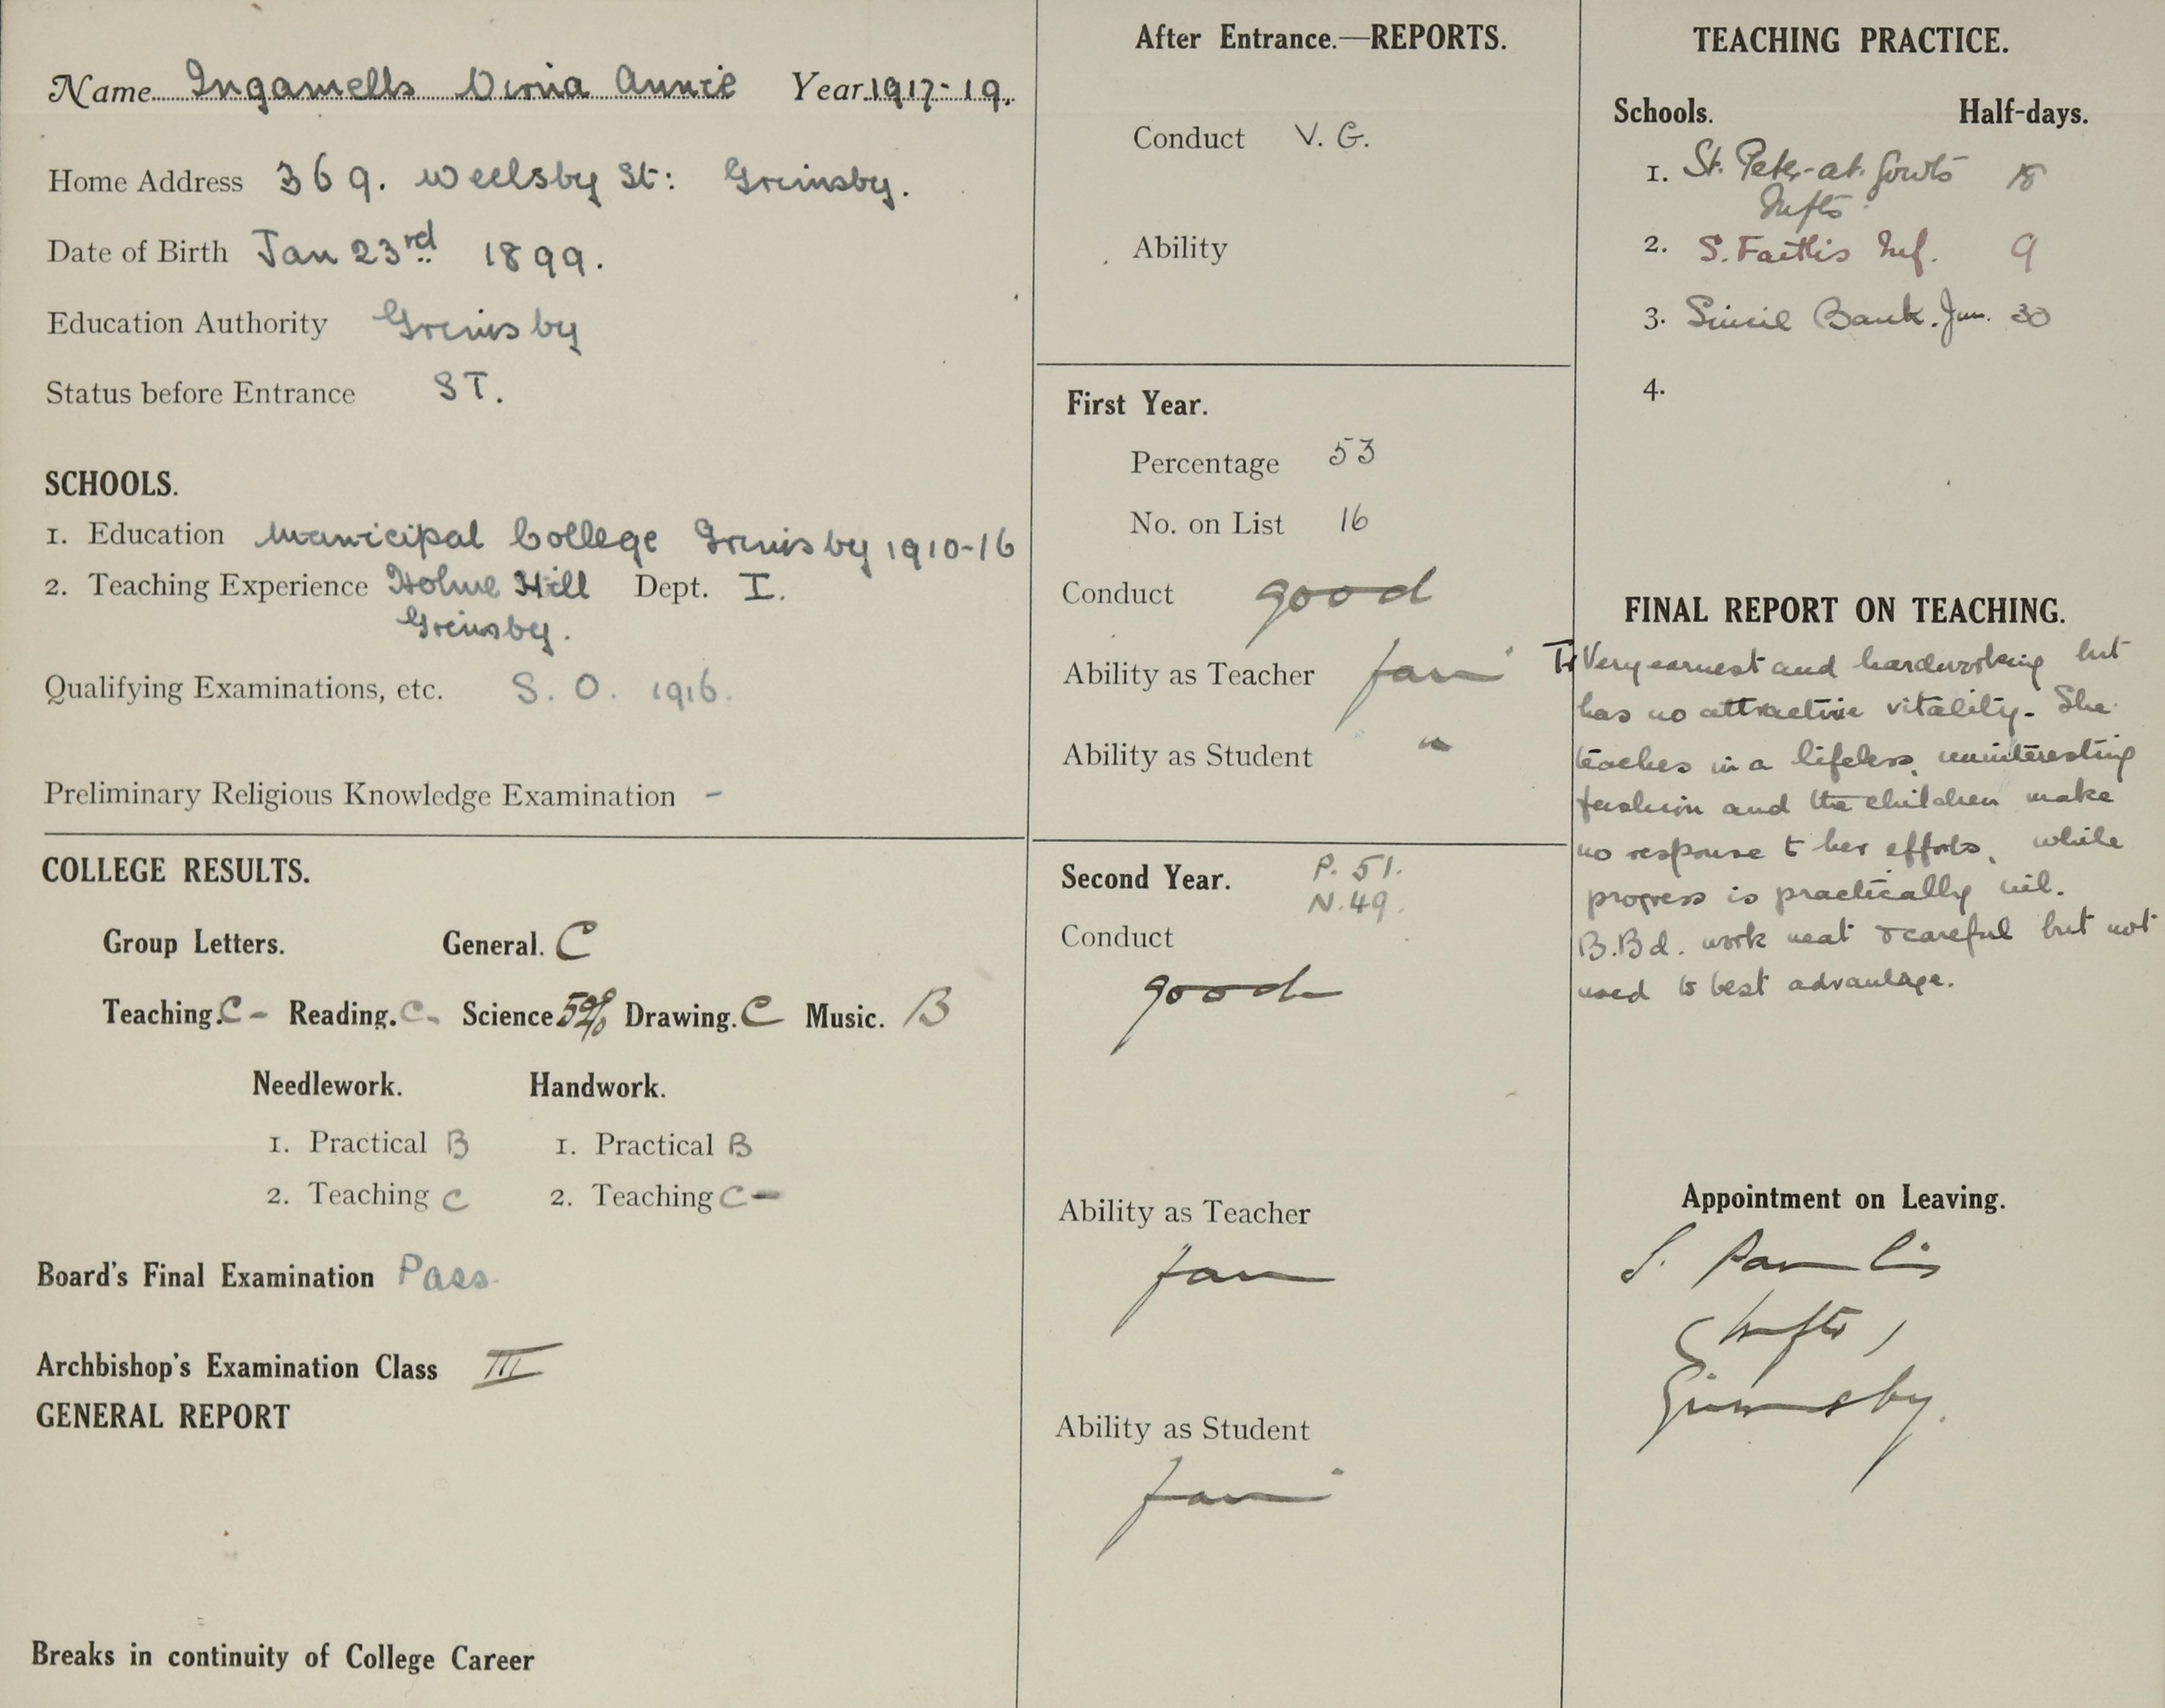 Name Ingamells Annie Year 1917-19.
Home Address 369. Weelsby St: Grimsby.
Date of Birth Jan 23rd 1899.
Education Authority Grimsby
Status before Entrance ST.
SCHOOLS.
1. Education Municipal College Grimsby 1910-16
2. Teaching Experience Holme Hill Dept. I.
Grimsby.
Qualifying Examinations, etc. S. O. 1916.
Preliminary Religious Knowledge Examination -
COLLEGE RESULTS.
Group Letters. General. C
Teaching. C - Reading. C - Science Drawing. C Music. B
Needlework. Handwork.
1. Practical B 1. Practical B
2. Teaching C 2. Teaching C -
Board's Final Examination Pass.
Archbishop's Examination Class III
GENERAL REPORT
Breaks in continuity of College Career
After Entrance.—REPORTS.
Conduct V. G.
Ability
First Year.
Percentage 53
No. on List 16
Conduct good
Ability as Teacher fair
Ability as Student "
Second Year. P. 51.
N. 49.
Conduct
good
Ability as Teacher
fair
Ability as Student
fair
TEACHING PRACTICE.
Schools. Half-days.
1. St. Peter-at-Gowts 18
Infts.
2. S. Faith's Inf. 9
3. Sincil Bank. Jun. 30
4.
FINAL REPORT ON TEACHING.
Very earnest and hardworking but
has no attractive vitality. She
teaches in a lifeless, uninteresting
fashion and the children make
no response to her efforts, while
progress is practically nil.
B.Bd. work neat & careful but not
used to best advantage.
Appointment on Leaving.
S.
(Infts)
Grimsby.